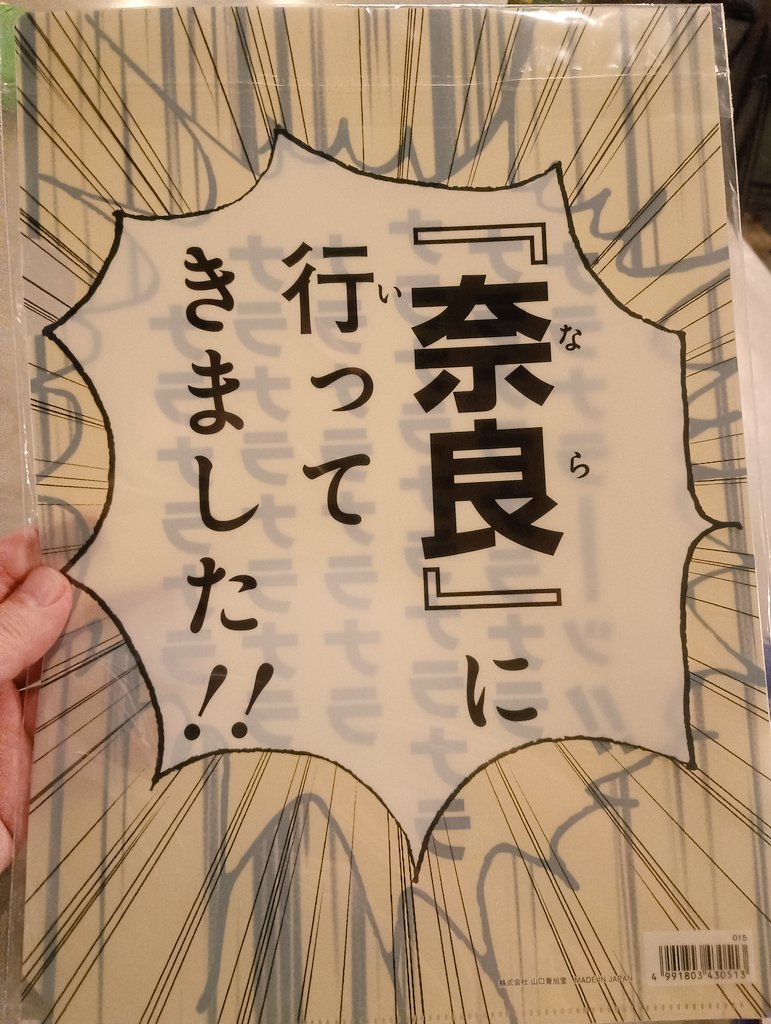 『奈良』に
なら
行って
い
きました!!
株式会社 山口青旭堂 MADE IN JAPAN
015
4 991803 430513